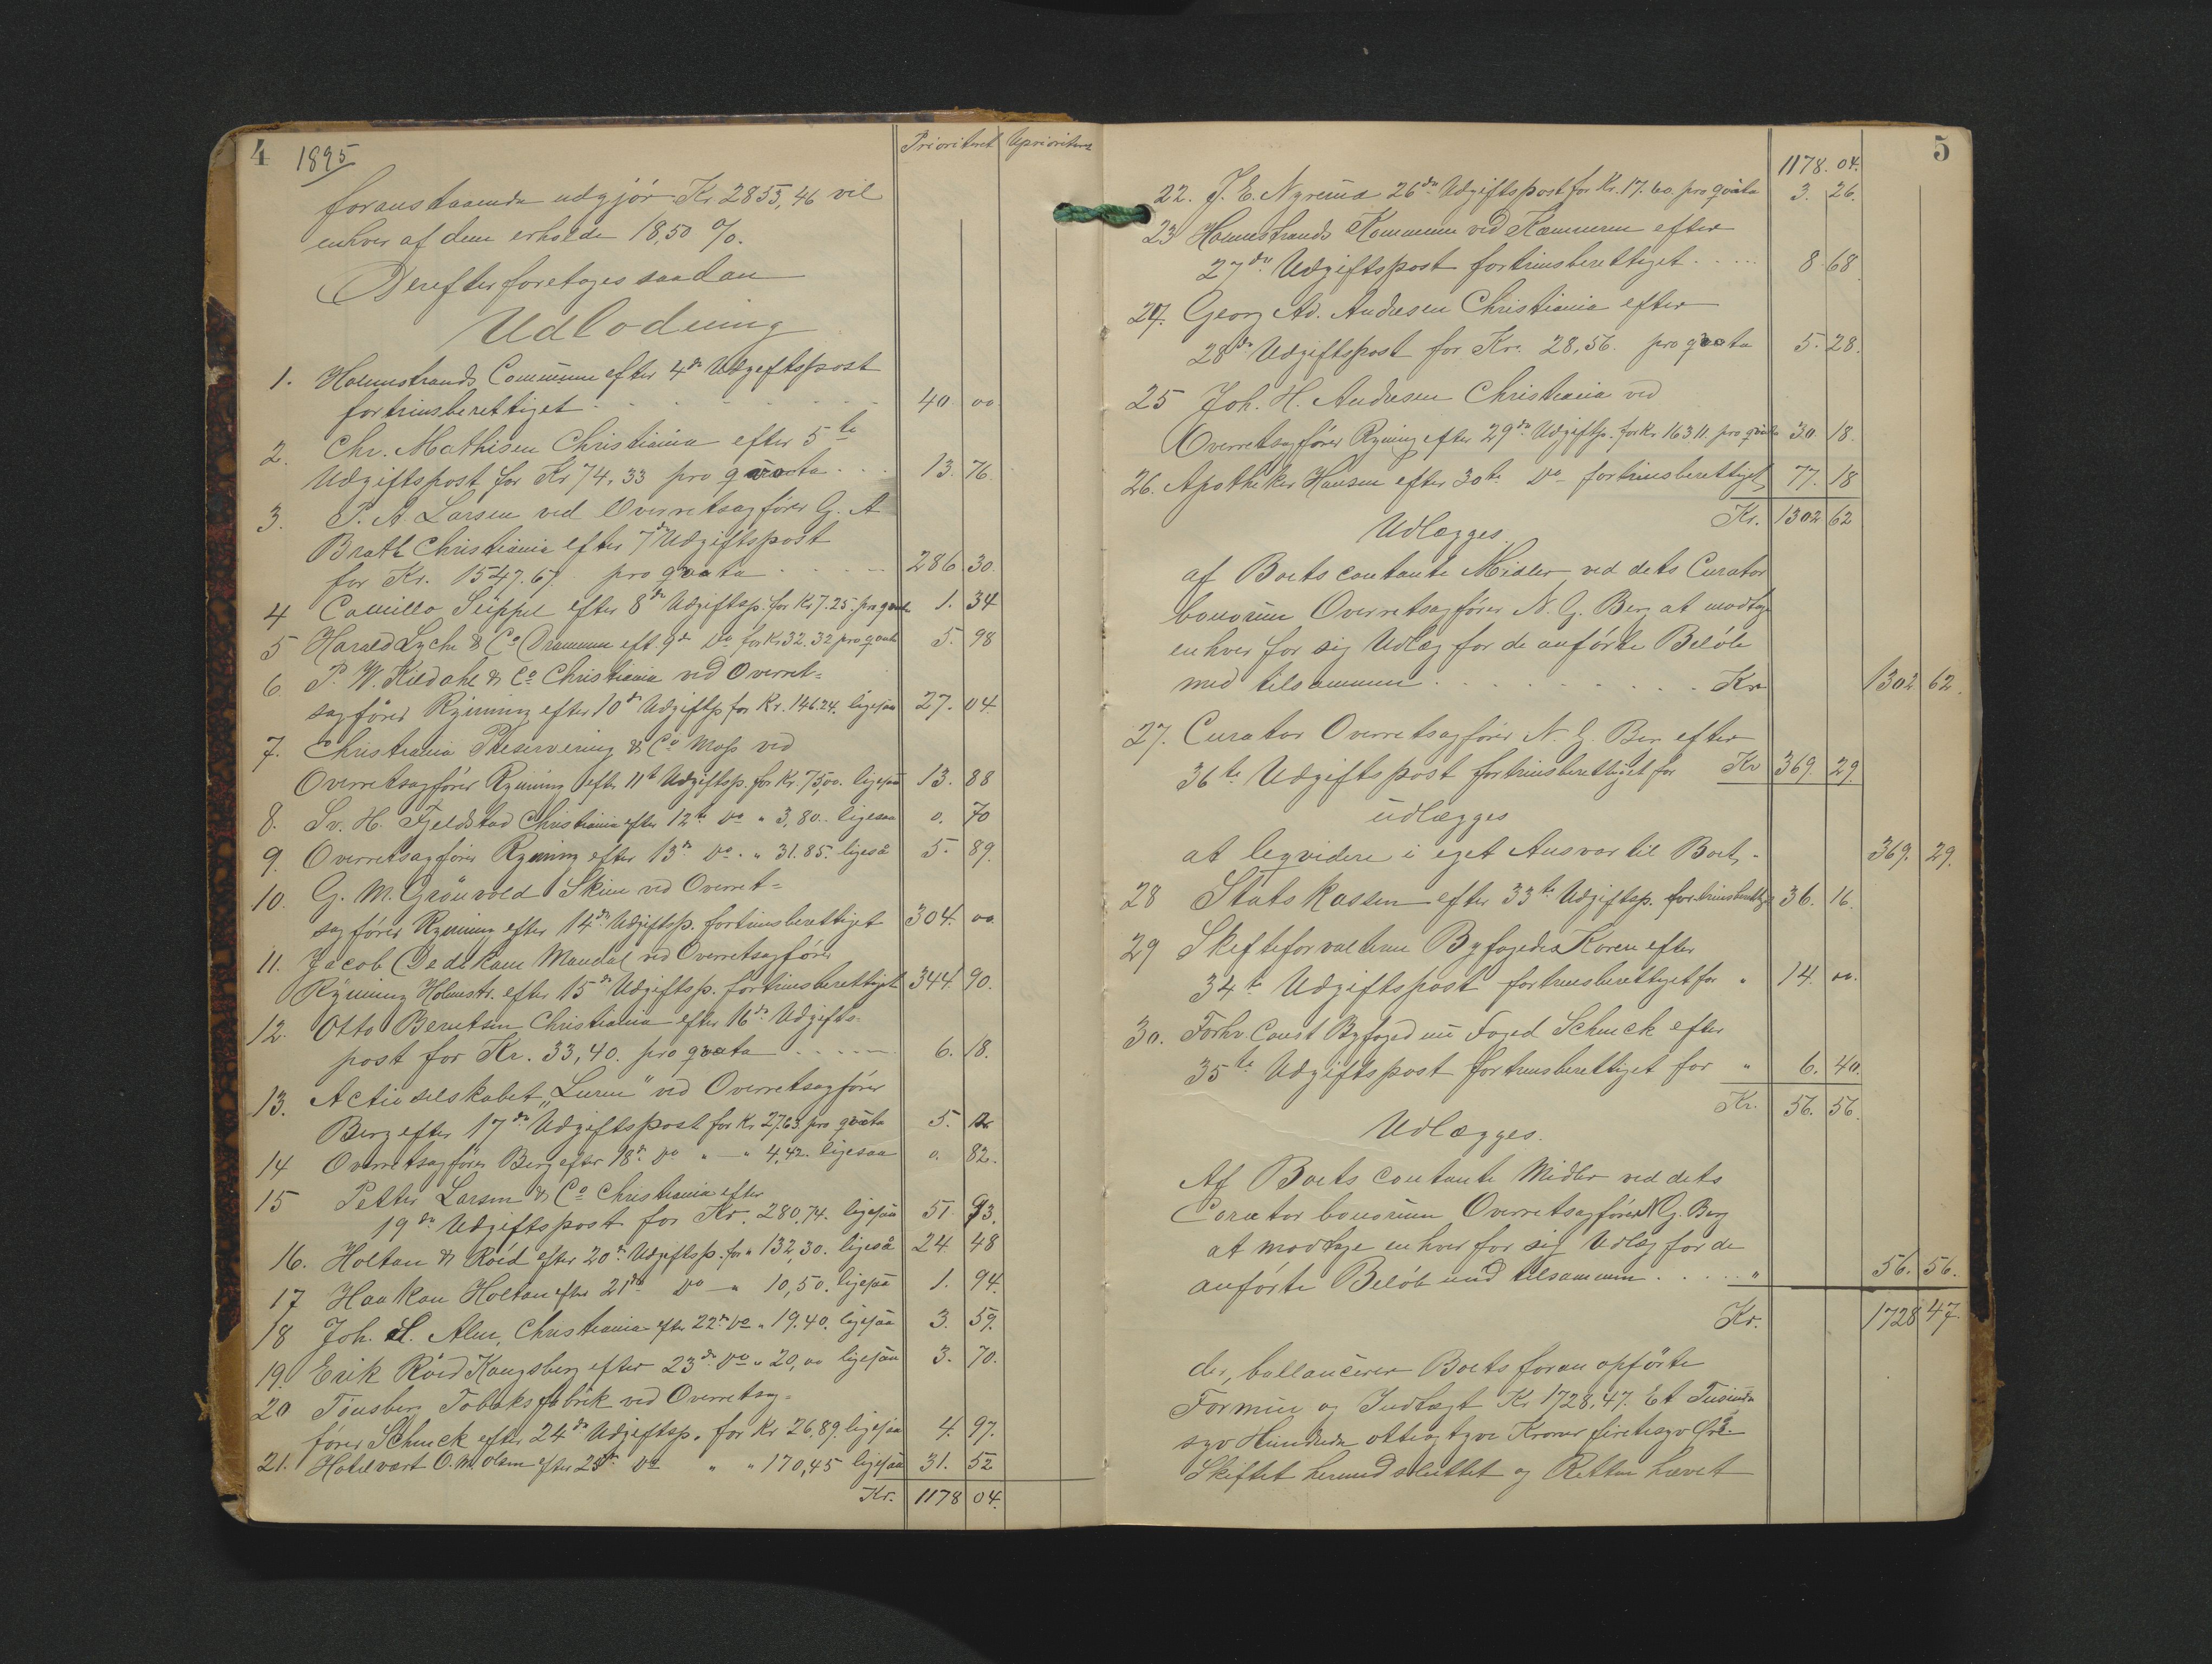 4 1895
Prioriteret Uprioriteret
foranstaaende udgjør Kr 2855,46 vil
enhver af dem erholde 18,50 %.
Derefter foretages saadan
Udlodning
1. Holmestrands Commune efter 4de Udgiftspost
fortrinsberettiget 40. 00
2. Chr. Mathisen Christiania efter 5te
Udgiftspost for Kr 74.33 pro qvota 13. 76.
3. P. A Larsen ved Overretsagfører G. A
Brath Christiania efter 7de Udgiftspost
for Kr. 1547.67. pro qvota 286 30.
4 Camillo Süppel efter 8de Udgiftsp. for Kr 7.25. pro qvota 1. 34
5 Harald Lyche & Co Drammen eft. 9de Do for Kr 32.32 pro qvota 5. 98
6. P. W. Kildahl & Co Christiania ved Overret=
sagfører Rynning efter 10de Udgiftsp for Kr. 146.24. ligesaa 27. 04.
7. Christiania Preservering & Co Moss ved
Overretsagfører Rynning efter 11te Udgiftsp. for Kr. 75,00. ligesaa 13. 88
8. Sv. H. Fjeldstad Christiania efter 12te Do " 3,80. ligesaa 0. 70
9. Overretsagfører Rynning efter 13de Do. " 31.85. ligeså 5. 89.
10. G. M. Grönvold Skien ved Overret=
sagfører Rynning efter 14de Udgiftsp. fortrinsberettiget 304. 00
11. Jacob Dedekam Mandal ved Overretsagfører
Rynning Holmestr. efter 15de Udgiftsp. fortrinsberettiget 344. 90.
12. Otto Berntsen Christiania efter 16de Udgifts-
post for Kr. 33,40. pro qvota 6. 18.
13. Actieselskabet "Luren" ved Overretsagfører
Berg efter 17de Udgiftspost for Kr 27.63. pro qvota 5. 12
14 Overretsagfører Berg efter 18de Do " — " 4,42. ligesaa 0. 82.
15 Petter Larsen & Co Christiania efter
19de Udgiftspost for Kr. 280.74. ligesaa 51. 93.
16. Holtan & Röed efter 20de Udgiftsp. for " 132,30. ligeså 24. 48
17 Haakon Holtan efter 21de Do — " 10,50. ligesaa 1. 94.
18 Joh. L. Alm, Christiania efter 22de Do " 19.40. ligesaa 3. 59.
19. Erik Röed Kongsberg efter 23de Do " 20,00 ligesaa 3. 70.
20 Tönsberg Tobaksfabrik ved Overretsag=
fører Schmck efter 24de Udgiftsp. for Kr 26.89. ligesaa 4. 97.
21. Hotelvært O. M. Olsen efter 25de Do " " 170,45 ligesaa 31. 52
Kr. 1178 04.
5
1178. 04.
22. J. E. 26de Udgiftspost for Kr. 17.60. pro qvota 3. 26.
23 Holmestrands Kommune ved Kæmneren efter
27de Udgiftspost fortrinsberettiget 8. 68
24. Georg Ad. Andresen Christiania efter
28de Udgiftspost for Kr. 28,56. pro qvota 5. 28.
25 Joh. H. Andresen Christiania ved
Overretsagfører Rynning efter 29de Udgiftsp. for Kr 163.11. pro qvota 30. 18.
26. Apotheker Hansen efter 30te Do fortrinsberettiget 77. 18
Kr. 1302 62
Udlægges.
af Boets contante Midler ved dets Curator
bonorum Overretsagfører N. G. Berg at modtage
enhver for sig Udlæg for de anførte Beløb
med tilsammen Kr 1302 62.
27. Curator Overretsagfører N. G. Berg efter
36te Udgiftspost fortrinsberettiget for Kr 369. 29.
udlægges
at leqvidere i eget Ansvar til Boet. 369. 29.
28 Statskassen efter 33te Udgiftsp. fortrinsberettiget 36. 16.
29 Skifteforvalteren Byfoged Koren efter
34te Udgiftspost fortrinsberettiget for " 14. 00.
30. Forhv. Const Byfoged nu Foged Schmck efter
35te Udgiftspost fortrinsberettiget for " 6. 40.
Kr. 56. 56.
Udlægges.
Af Boets contante Midler ved dets
Curator bonorum Overretsagfører N G. Berg
at modtage enhver for sig Udlæg for de
anførte Beløb med tilsammen " 56. 56.
Kr. 1728 47.
der, ballancerer Boets foran opførte
Formue og Indtægt Kr 1728,47. Et Tusinde
syv Hundrede otteogtyve Kroner firtisyv Øre.
Skiftet hermed sluttet og Retten hævet